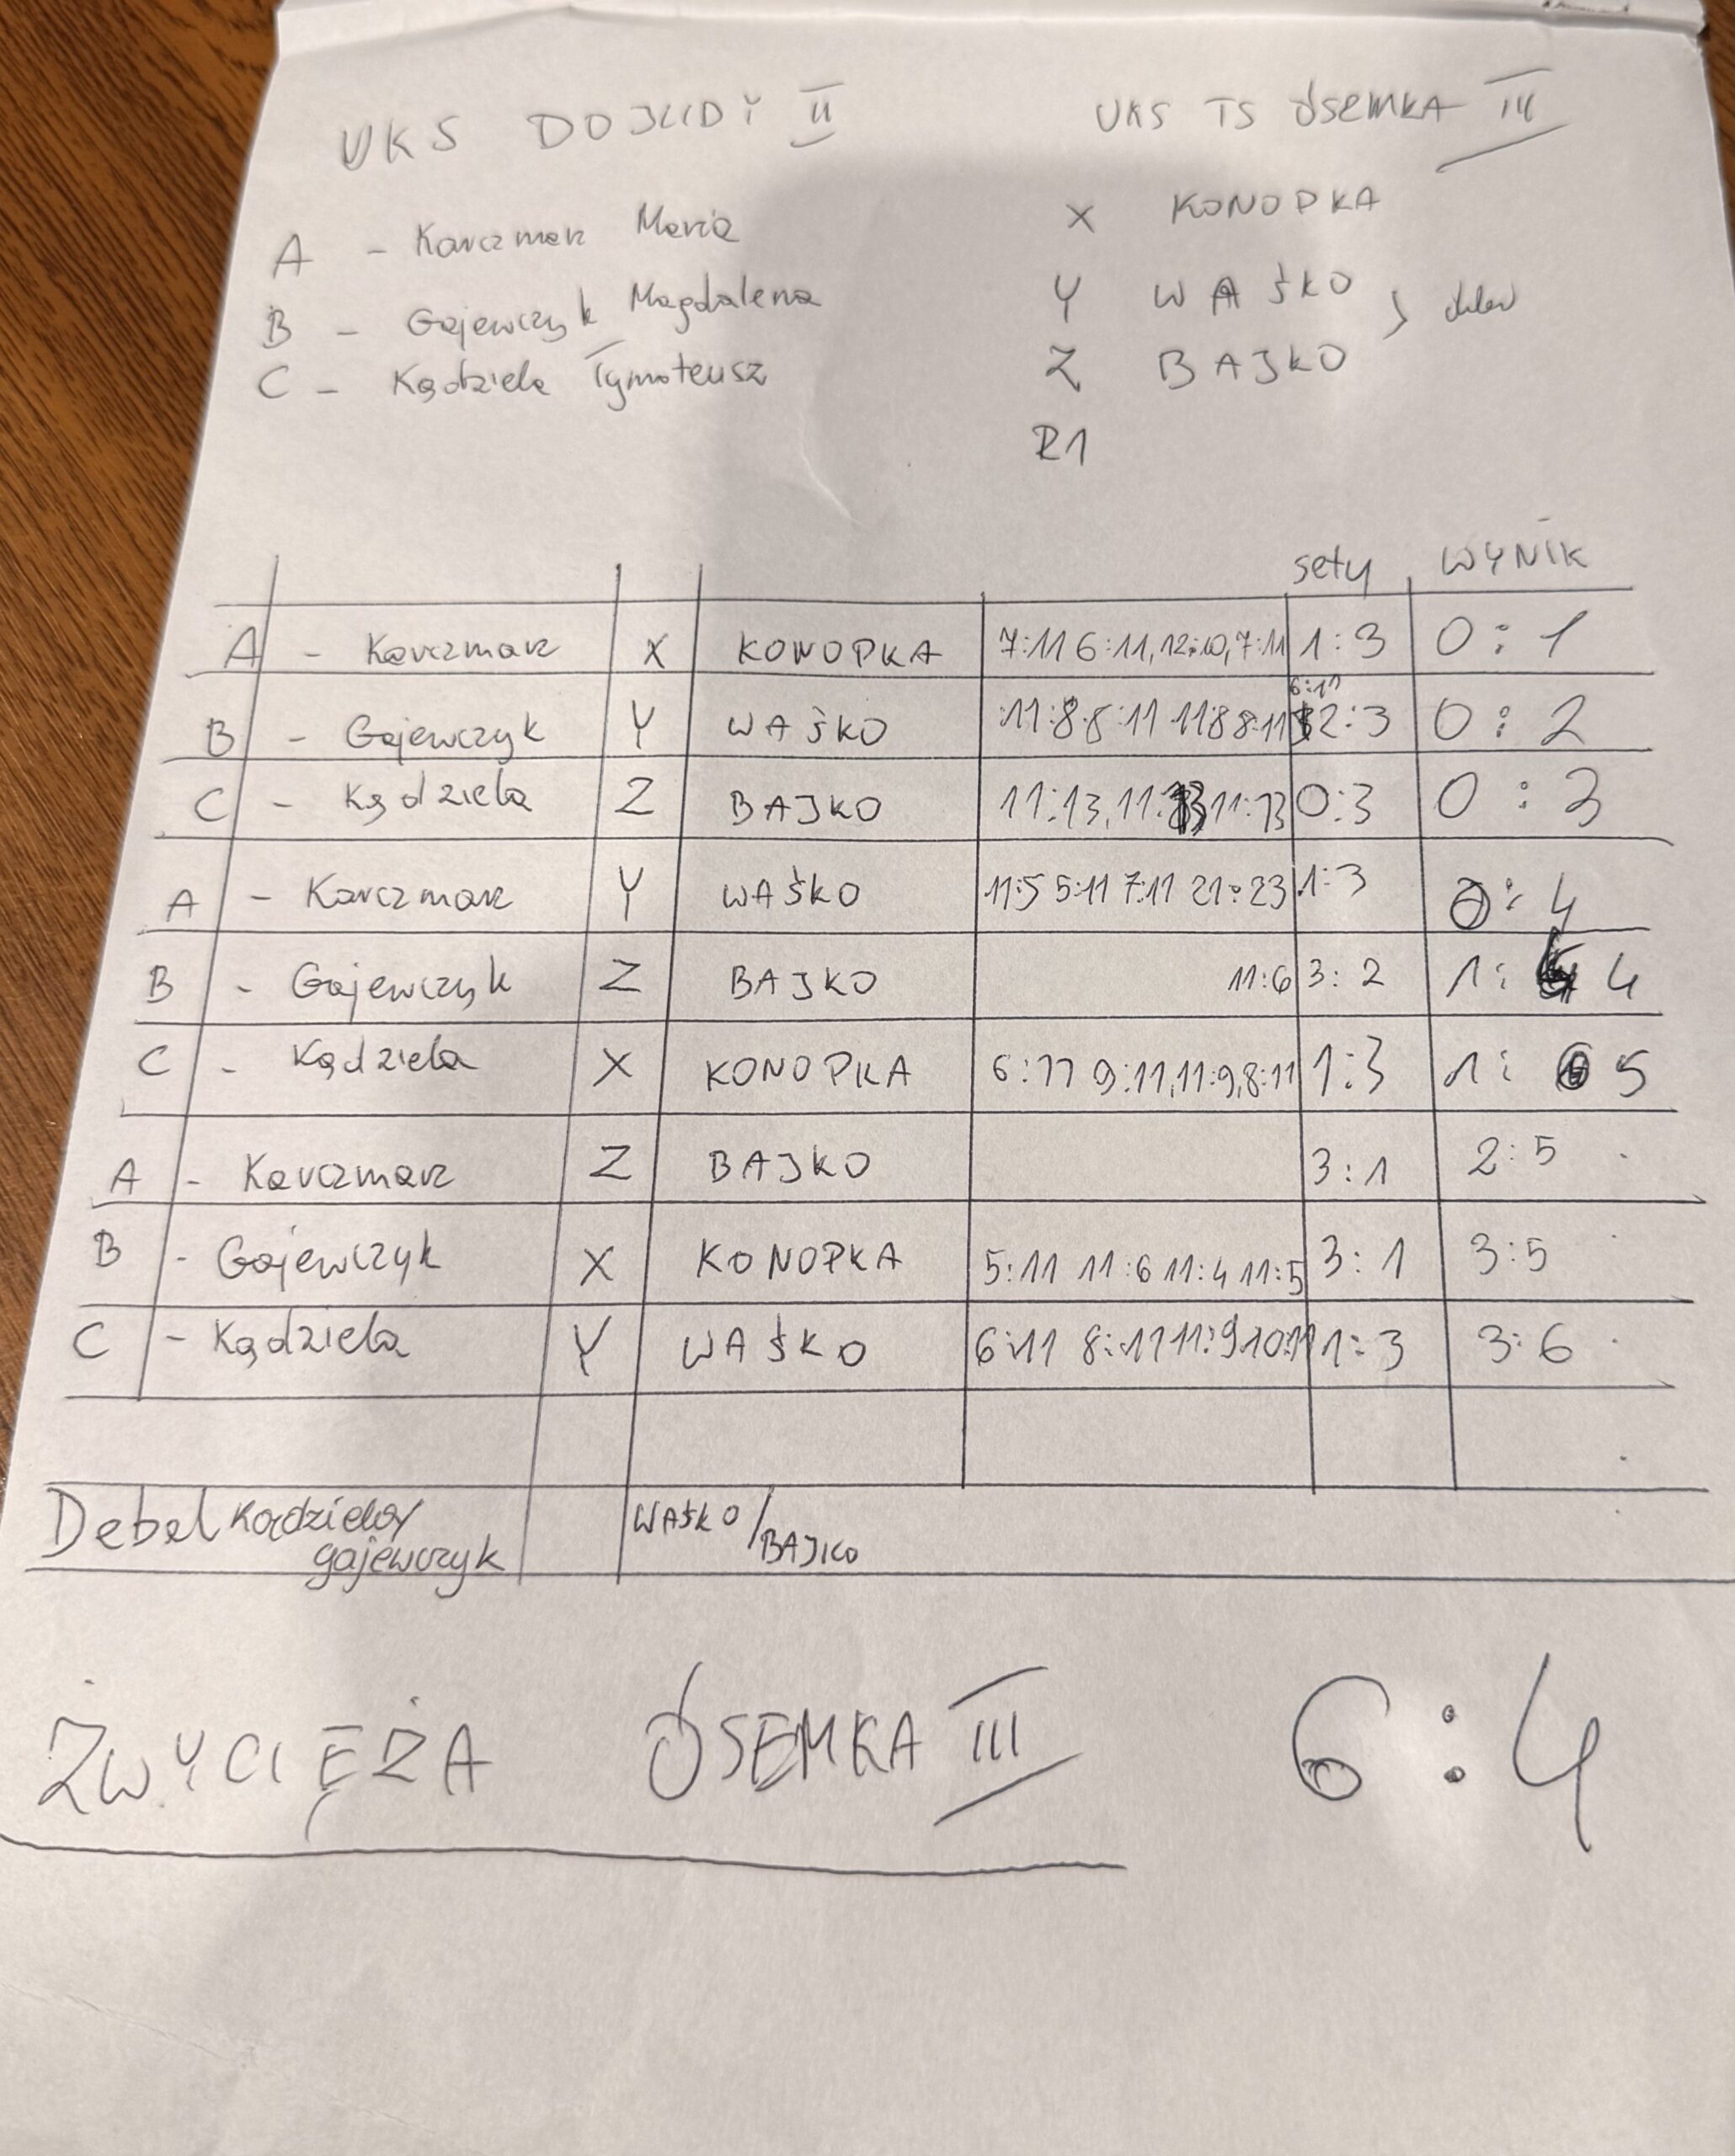 UKS DOJLIDY II UKS TS ÓSEMKA III
A - Karczmarz Maria X KONOPKA
B - Gajewczyk Magdalena Y WAŚKO } debel
C - Kądziela Tymoteusz Z BAJKO
R1
sety WYNIK
A - Karczmarz X KONOPKA 7:11 6:11, 12:10, 7:11 1:3 0:1
6:11
B - Gajewczyk Y WAŚKO 11:8 8:11 11 8 8:11 2:3 0:2
C - Kądziela Z BAJKO 11:13, 11:13 11:13 0:3 0:3
A - Karczmarz Y WAŚKO 11:5 5:11 7:11 21:23 1:3 0:4
B - Gajewczyk Z BAJKO 11:6 3:2 1:4
C - Kądziela X KONOPKA 6:11 9:11, 11:9, 8:11 1:3 1:5
A - Karczmarz Z BAJKO 3:1 2:5
B - Gajewczyk X KONOPKA 5:11 11:6 11:4 11:5 3:1 3:5
C - Kądziela Y WAŚKO 6:11 8:11 11:9 10:11 1:3 3:6
Debel Kądziela/ WAŚKO/
gajewczyk BAJKO
ŻWYCIĘŻA ÓSEMKA III 6:4